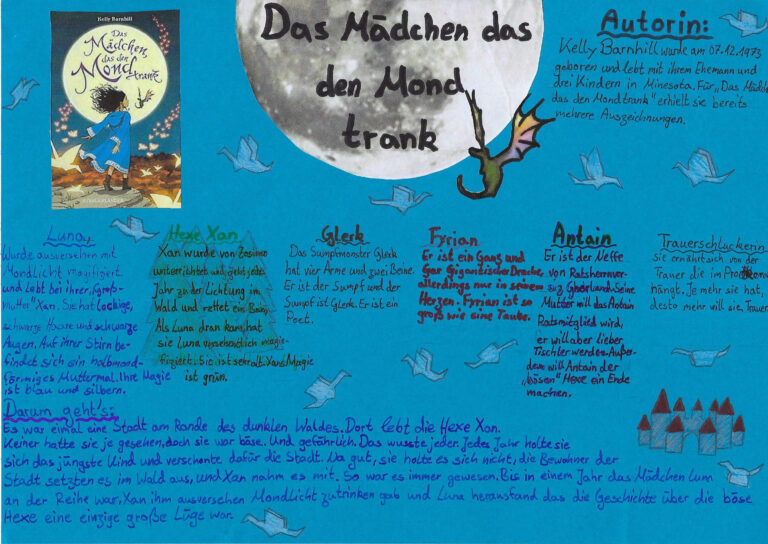 Kelly Barnhill
Das
Mädchen,
das den
Mond
trank
Das Mädchen das
den Mond
trank
Autorin:
Kelly Barnhill wurde am 07.12.1973
geboren und lebt mit ihrem Ehemann und
drei Kindern in Minesota. Für „Das Mädche
das den Mond trank" erhielt sie bereits
mehrere Auszeichnungen.
Luna
Wurde ausversehen mit
Mondlicht magifiziert
und lebt bei ihrer „Groß-
mutter" Xan. Sie hat lockige,
schwarze Haare und schwarze
Augen. Auf ihrer Stirn be-
findet sich ein halbmond-
förmiges Muttermal. Ihre Magie
ist blau und silbern.
Hexe Xan
Xan wurde von Zosimo
unterrichtet und geht jedes
Jahr zu der Lichtung im
Wald und rettet ein Baby.
Als Luna dran kam, hat
sie Luna versehentlich magie-
fiziert. Sie ist sehr alt. Xans Magie
ist grün.
Glerk
Das Sumpfmonster Glerk
hat vier Arme und zwei Beine.
Er ist der Sumpf und der
Sumpf ist Glerk. Er ist ein
Poet.
Fyrian
Er ist ein Ganz und
Gar Gigantischer Drache,
allerdings nur in seinem
Herzen. Fyrian ist so
groß wie eine Taube.
Antain
Er ist der Neffe
von Ratsherrn
Gherland. Seine
Mutter will das Antain
Ratsmitglied wird,
er will aber lieber
Tischler werden. Außer-
dem will Antain der
„bösen" Hexe ein Ende
machen.
Trauerschluckerin
sie ernährt sich von der
Trauer die im
hängt. Je mehr sie hat,
desto mehr will sie, Trauer
Darum geht's:
Es war eimal eine Stadt am Rande des dunklen Waldes. Dort lebt die Hexe Xan.
Keiner hatte sie je gesehen, doch sie war böse. Und gefährlich. Das wusste jeder. Jedes Jahr holte sie
sich das jüngste Kind und verschonte dafür die Stadt. Na gut, sie holte es sich nicht, die Bewohner der
Stadt setzten es im Wald aus, und Xan nahm es mit. So war es immer gewesen. Bis in einem Jahr das Mädchen Luna
an der Reihe war, Xan ihm ausversehen Mondlicht zutrinken gab und Luna herausfand das die Geschichte über die böse
Hexe eine einzige große Lüge war.